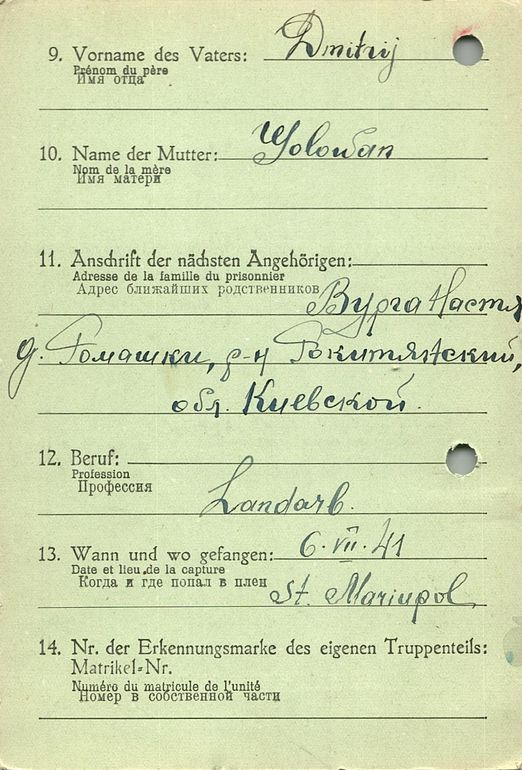 9. Vorname des Vaters: Dmitrij
Prénom du père
Имя отца
10. Name der Mutter: Golowan
Nom de la mère
Имя матери
11. Anschrift der nächsten Angehörigen:
Adresse de la famille du prisonnier
Адрес ближайших родственников Вурга Настя
д. Ромашки, р-н Рокитянский,
обл. Киевской.
12. Beruf:
Profession
Профессия
Landarb.
13. Wann und wo gefangen: 6.VII.41
Date et lieu de la capture
Когда и где попал в плен St. Mariupol
14. Nr. der Erkennungsmarke des eigenen Truppenteils:
Matrikel-Nr.
Numéro du matricule de l'unité
Номер в собственной части